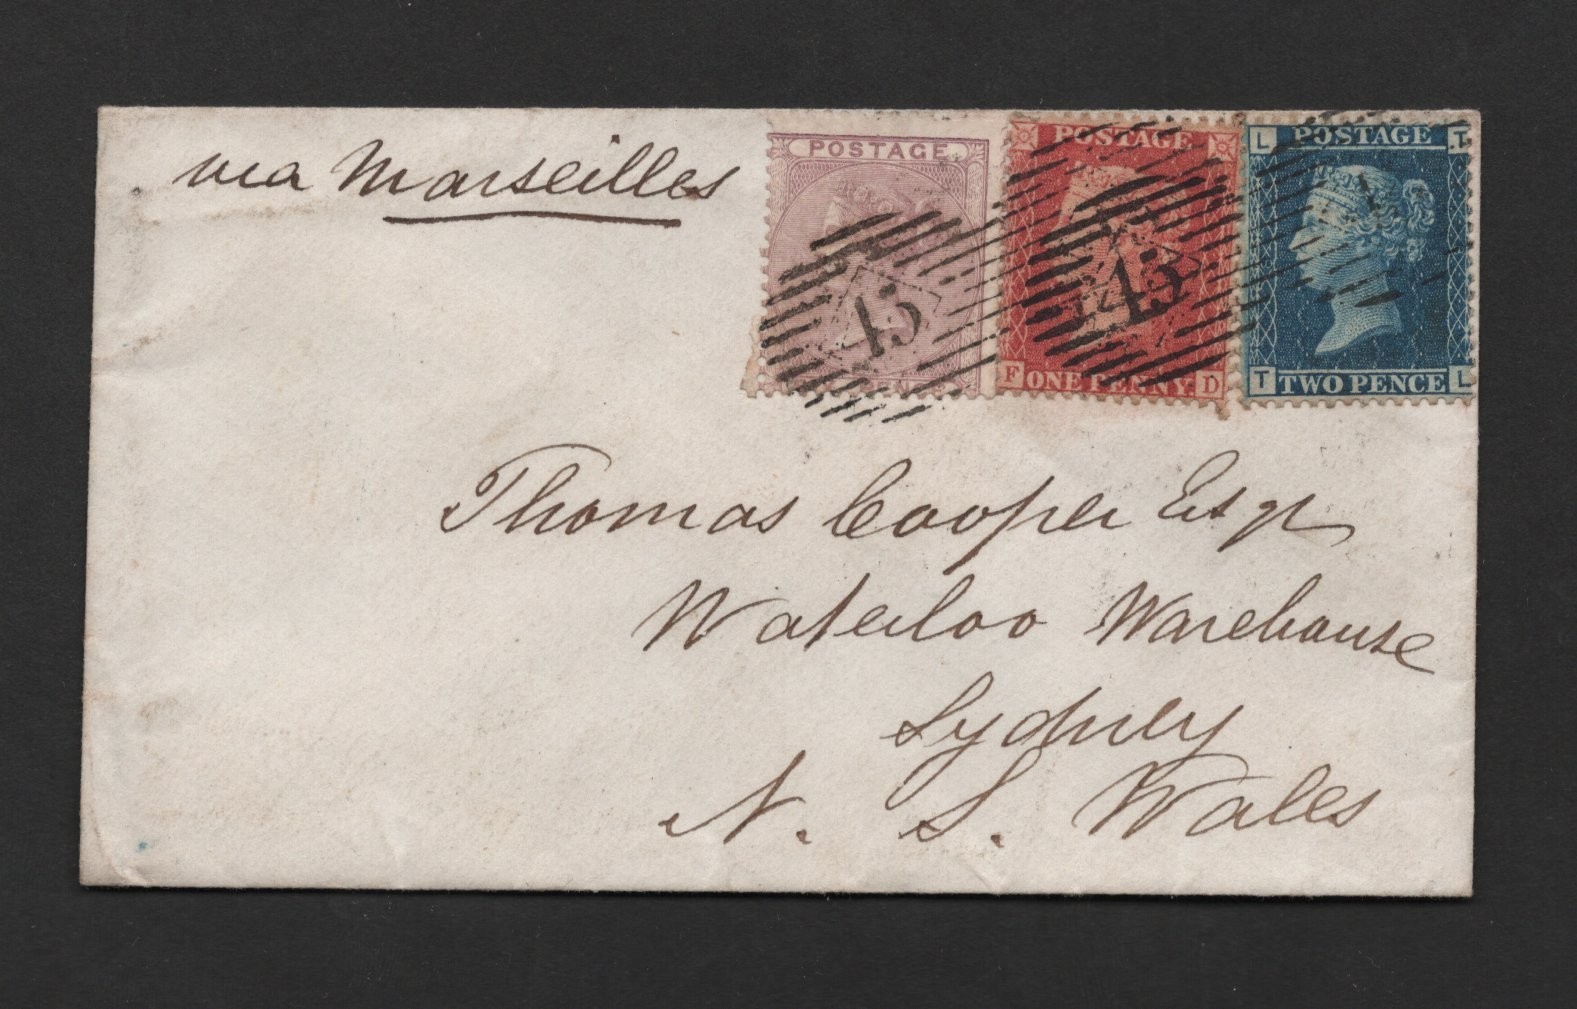 via Marseilles
POSTAGE
POSTAGE
F ONE PENNY. D
L POSTAGE T
T TWO PENCE L
15
15
Thomas Cooper Esqr
Waterloo Warehouse
Sydney
N. S. Wales